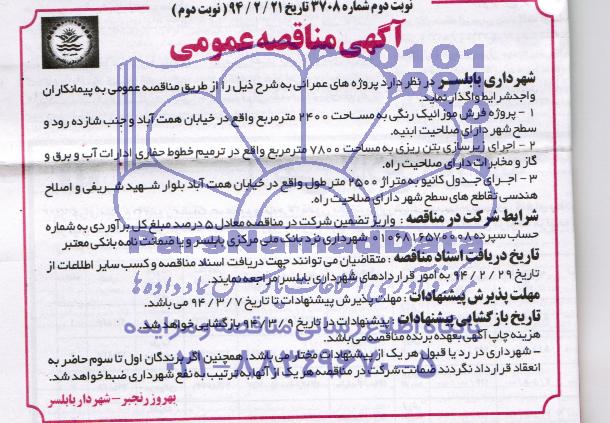 نوبت دوم شماره ۳۷۰۸ تاریخ ۹۴/۲/۲۱ ( نوبت دوم )
آگهی مناقصه عمومی
شهرداری بابلسر در نظر دارد پروژه های عمرانی به شرح ذیل را از طریق مناقصه عمومی به پیمانکاران
واجد شرایط واگذار نماید.
۱ - پروژه فرش موزائیک رنگی به مساحت ۲۴۰۰ مترمربع واقع در خیابان همت آباد و جنب شازده رود و
سطح شهر دارای صلاحیت ابنیه.
۲ - اجرای زیرسازی بتن ریزی به مساحت ۷۸۰۰ مترمربع واقع در ترمیم خطوط حفاری ادارات آب و برق و
گاز و مخابرات دارای صلاحیت راه.
۳ - اجرای جدول کانیو به متراژ ۲۵۰۰ متر طول واقع در خیابان همت آباد بلوار شهید شریفی و اصلاح
هندسی تقاطع های سطح شهر دارای صلاحیت راه.
شرایط شرکت در مناقصه : واریز تضمین شرکت در مناقصه معادل ۵ درصد مبلغ کل برآوردی به شماره
حساب سپرده شهرداری نزد بانک ملی مرکزی بابلسر و یا ضمانت نامه بانکی معتبر
تاریخ دریافت اسناد مناقصه : متقاضیان می توانند جهت دریافت اسناد مناقصه و کسب سایر اطلاعات از
تاریخ ۹۴/۲/۲۹ به امور قراردادهای شهرداری بابلسر مراجعه نمایند.
مهلت پذیرش پیشنهادات : مهلت پذیرش پیشنهادات تا تاریخ ۹۴/۳/۷ می باشد.
تاریخ بازگشایی پیشنهادات : پیشنهادات در تاریخ ۹۴/۳/۹ بازگشایی خواهد شد.
هزینه چاپ آگهی بعهده برنده مناقصه می باشد.
- شهرداری در رد یا قبول هر یک از پیشنهادات مختار می باشد. همچنین اگر برندگان اول تا سوم حاضر به
انعقاد قرارداد نگردند ضمانت شرکت در مناقصه هر یک از آنها به ترتیب به نفع شهرداری ضبط خواهد شد.
بهروز رنجبر - شهردار بابلسر
ParsNamadData
پایگاه اطلاع رسانی مناقصه و مزایده
۰۲۱-۸۸۳۴۹۶۷۰-۵